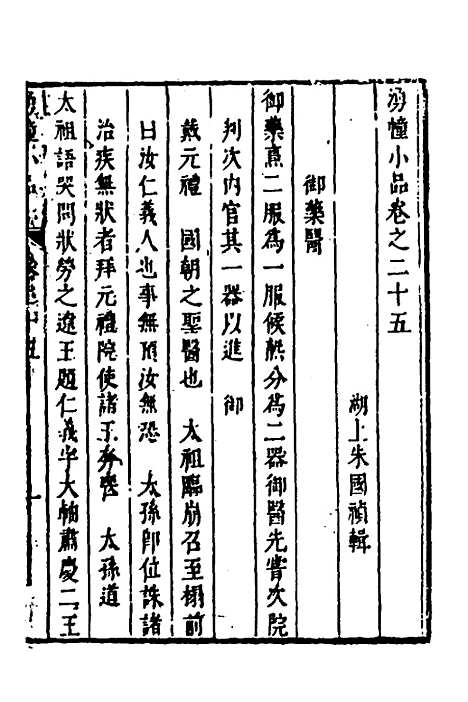 湧幢小品卷之二十五
湖上朱國禎輯
御藥醫
御藥烹二服為一服候熟分為二器御醫先嘗次院
判次内官其一器以進　御
戴元禮　國朝之聖醫也　太祖臨崩召至榻前
曰汝仁義人也事無預汝無恐　太孫卽位誅諸
治疾無狀者拜元禮院使諸王奔喪　太孫道
太祖語哭問狀勞之遼王題仁義字大軸肅慶二王